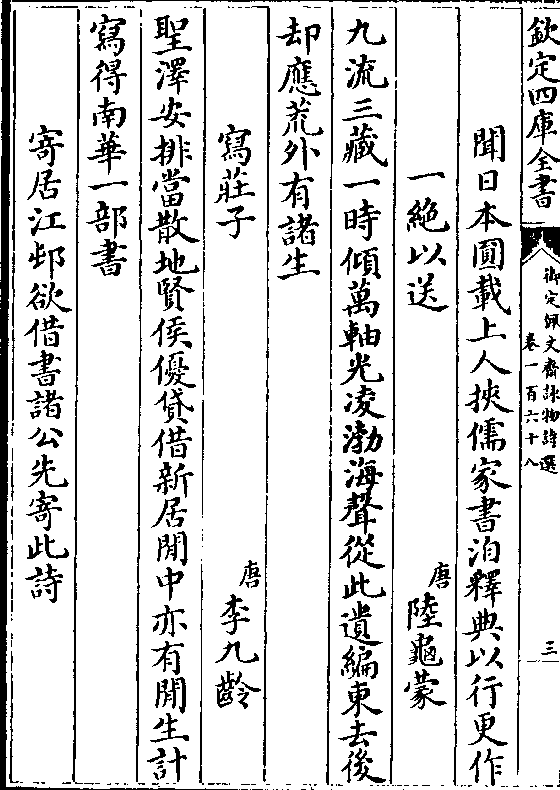 欽定四庫全書
御定佩文齋詠物詩選
卷一百六十八
三
聞日本圓載上人挾儒家書洎釋典以行更作
一絶以送
唐 陸龜蒙
九流三藏一時傾萬軸光凌渤海聲從此遺編東去後
却應荒外有諸生
寫莊子
唐 李九齡
聖澤安排當散地賢侯優貸借新居閒中亦有閒生計
寫得南華一部書
寄居江邨欲借書諸公先寄此詩